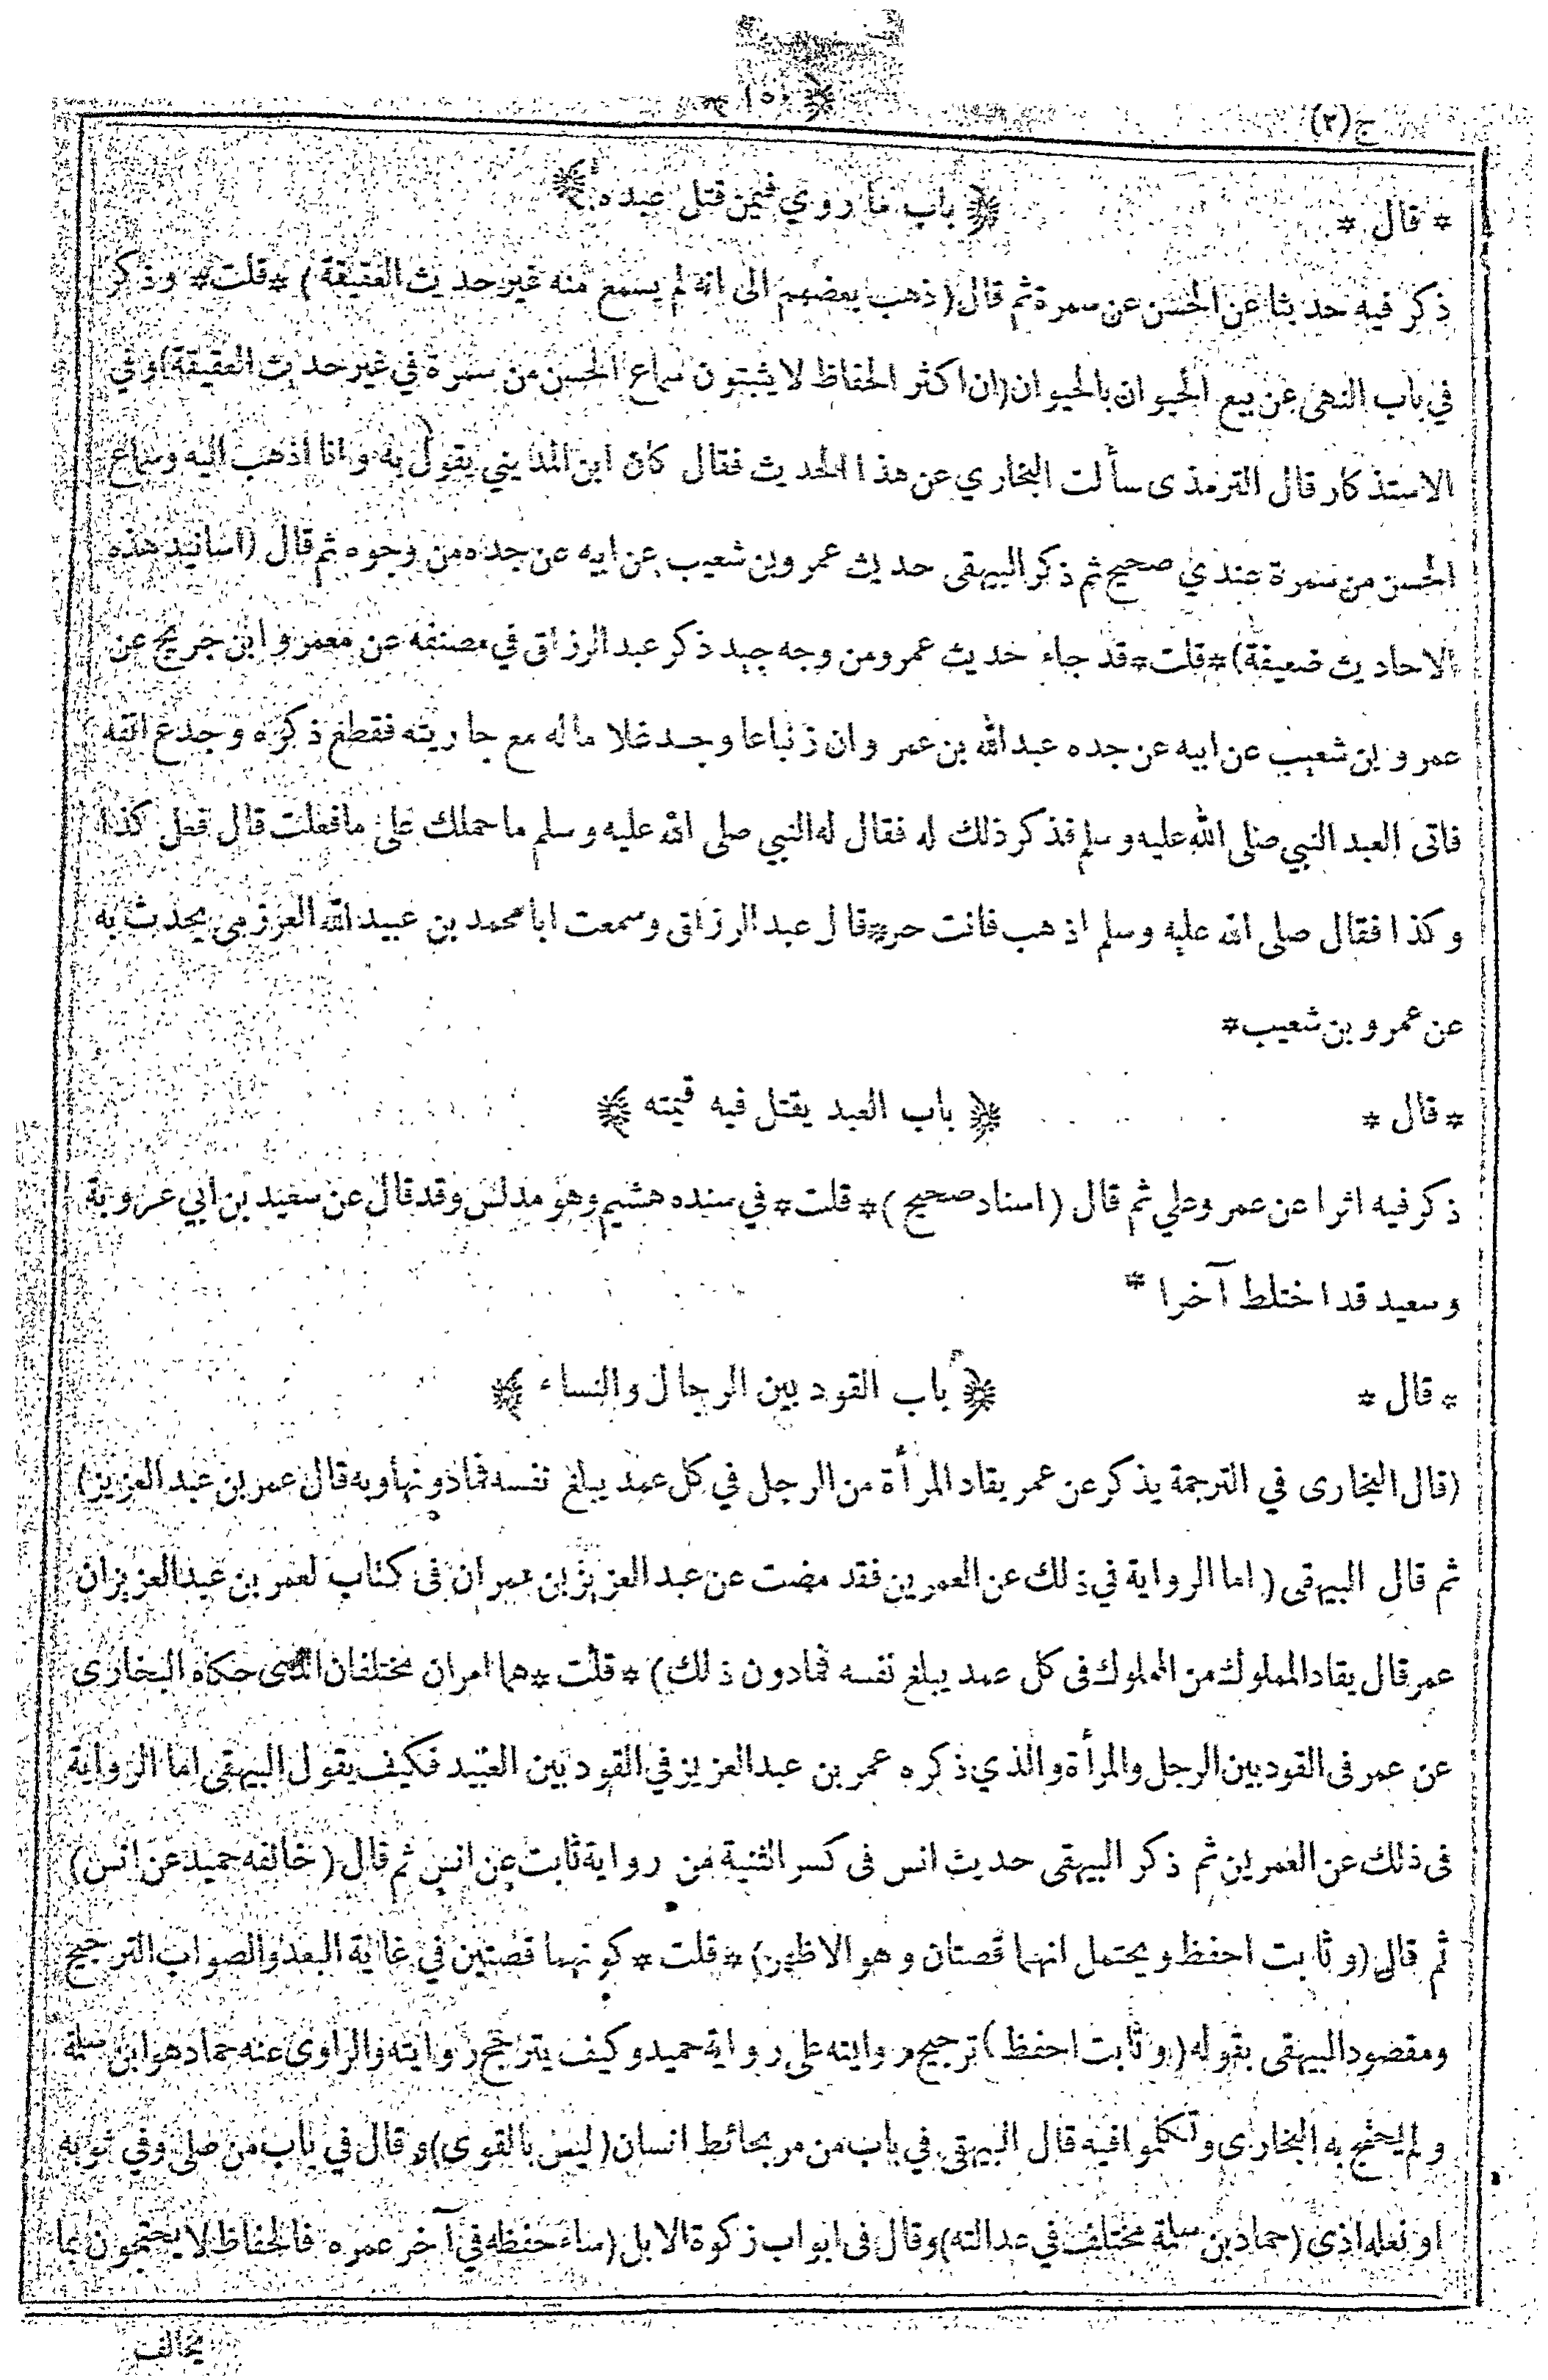 ج(٢)
* قال * ﴿ باب ما روي فيمن قتل عبده ﴾
ذكر فيه حديثا عن الحسن عن سمرة ثم قال (ذهب بعضهم الى انه لم يسمع منه غير حديث العقيقة) * قلت * وذكر
في باب النهى عن بيع الحيوان بالحيوان (ان اكثر الحفاظ لا يثبتون سماع الحسن من سمرة في غير حديث العقيقة) وفي
الاستذكار قال الترمذى سألت البخاري عن هذا الحديث فقال كان ابن المديني يقول به وانا اذهب اليه وسماع
الحسن من سمرة عندي صحيح ثم ذكر البيهقى حديث عمرو بن شعيب عن ابيه عن جده من وجوه ثم قال (اسانيد هذه
الاحاديث ضعيفة) * قلت * قد جاء حديث عمرو من وجه جيد ذكر عبد الرزاق في مصنفه عن معمر و ابن جريج عن
عمرو بن شعيب عن ابيه عن جده عبد الله بن عمرو ان زنباعا وجد غلاما له مع جاريته فقطع ذكره وجدع انفه
فاتى العبد النبي صلى الله عليه وسلم فذكر ذلك له فقال له النبي صلى الله عليه وسلم ما حملك على ما فعلت قال فعل كذا
وكذا فقال صلى الله عليه وسلم اذهب فانت حر * قال عبد الرزاق وسمعت ابا محمد بن عبيد الله العرزمي يحدث به
عن عمرو بن شعيب *
* قال * ﴿ باب العبد يقتل فيه قيمته ﴾
ذكر فيه اثرا عن عمر وعلي ثم قال (اسناد صحيح) * قلت * في سنده هشيم وهو مدلس وقد قال عن سعيد بن ابي عروبة
وسعيد قد اختلط آخرا *
* قال * ﴿ باب القود بين الرجال والنساء ﴾
(قال البخارى في الترجمة يذكر عن عمر يقاد المرأة من الرجل في كل عمد يبلغ نفسه فما دونها وبه قال عمر بن عبد العزيز)
ثم قال البيهقى (اما الرواية في ذلك عن العمرين فقد مضت عن عبد العزيز بن عمر ان فى كتاب لعمر بن عبد العزيز ان
عمر قال يقاد المملوك من المملوك فى كل عمد يبلغ نفسه فما دون ذلك) * قلت * هما امران مختلفان الذى حكاه البخارى
عن عمر فى القود بين الرجل والمرأة والذي ذكره عمر بن عبد العزيز في القود بين العبيد فكيف يقول البيهقى اما الرواية
فى ذلك عن العمرين ثم ذكر البيهقى حديث انس فى كسر الثنية من رواية ثابت عن انس ثم قال (خالفه حميد عن انس)
ثم قال (وثابت احفظ ويحتمل انهما قصتان وهو الاظهر) * قلت * كونهما قصتين في غاية البعد والصواب الترجيح
ومقصود البيهقى بقوله (وثابت احفظ) ترجيح روايته على رواية حميد وكيف يترجح روايته والراوى عنه حماد هو ابن سلمة
ولم يحتج به البخارى وتكلموا فيه قال البيهقى في باب من مر بحائط انسان (ليس بالقوى) وقال في باب من صلى وفي ثوبه
او نعله اذى (حماد بن سلمة مختلف في عدالته) وقال فى ابواب زكوة الابل (ساء حفظه في آخر عمره فالحفاظ لا يحتجون بما
يخالف